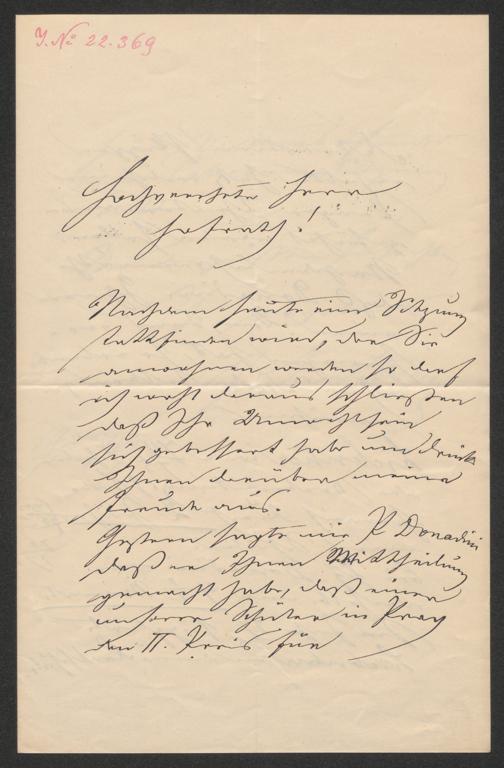 I. No 22.369
Hochverehrter Herr
Hofrath!
Nachdem heute eine Sitzung
stattfinden wird, der Sie
anwohnen werden so darf
ich wohl daraus schließen
daß Ihr Unwohlsein
sich gebessert habe und drücke
Ihnen darüber meine
Freude aus.
Gestern sagte mir P Donadini
daß er Ihnen Mittheilung
gemacht habe, daß einer
unserer Schüler in Prag
den II. Preis für